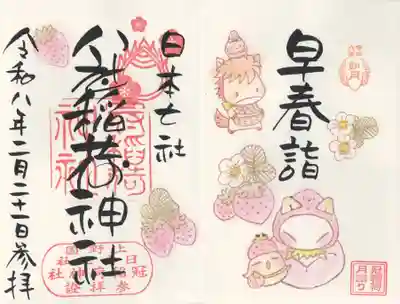 早春詣
冠稲荷
月詣り
日本七社
冠稲荷神社
令和八年二月二十一日参拝